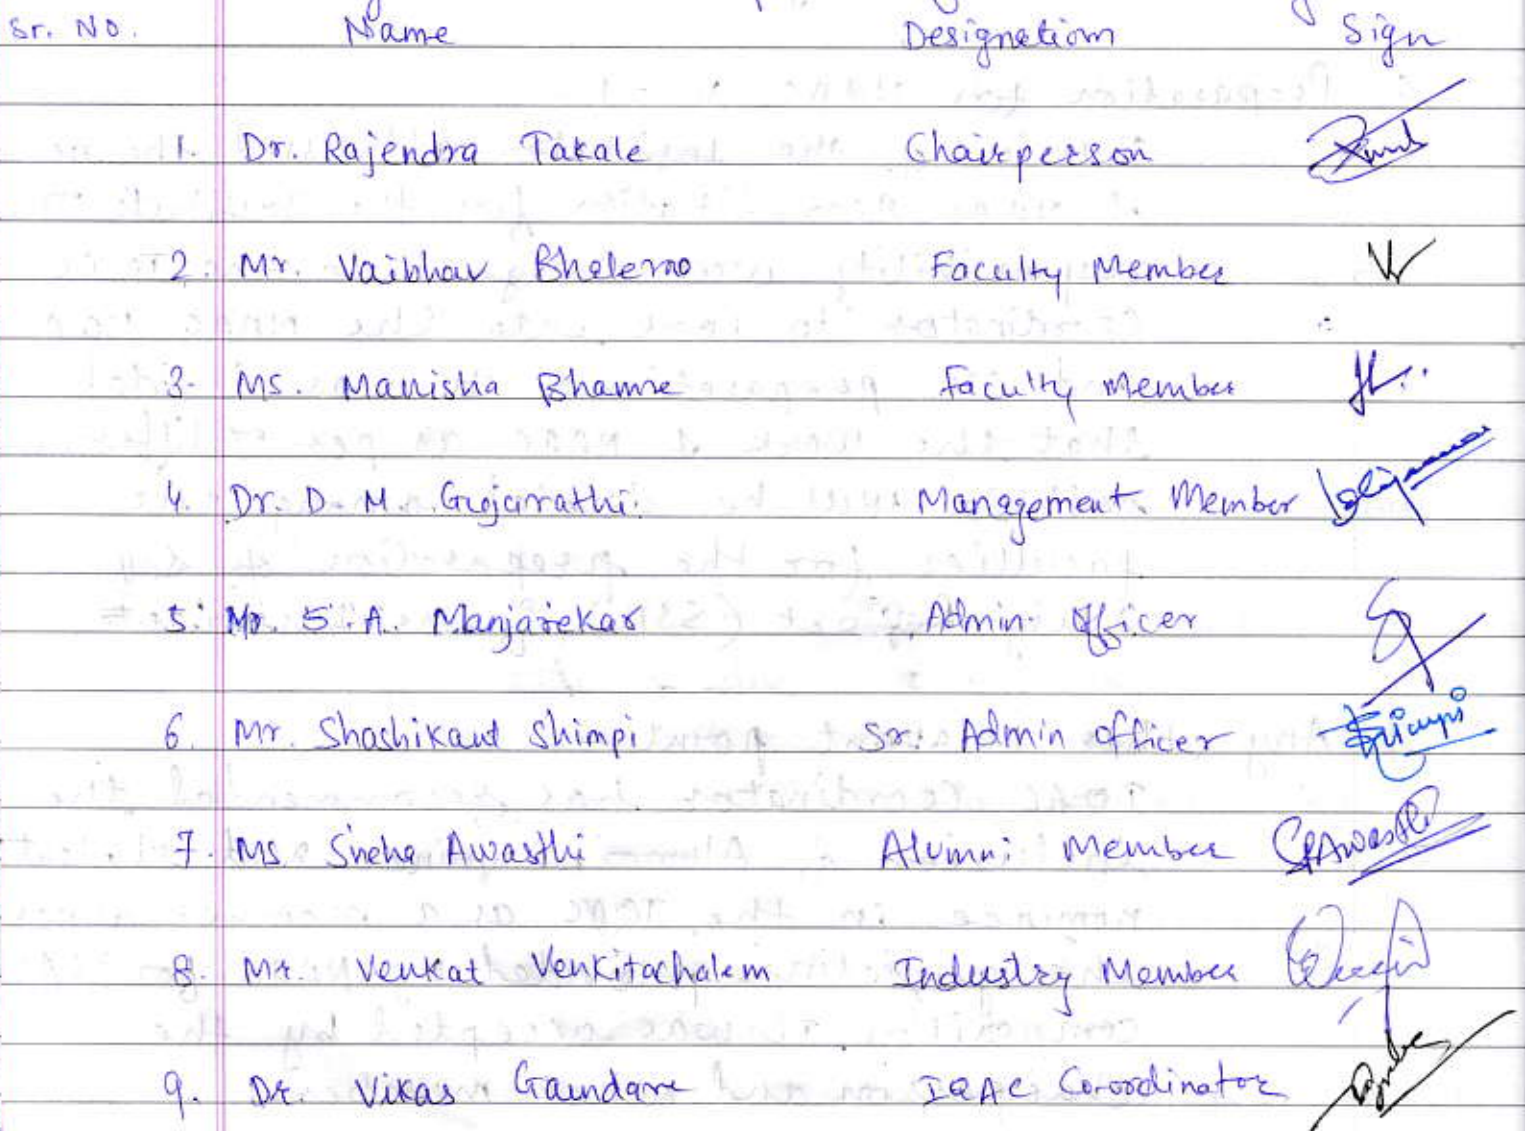 Sr. No. Name Designation Sign
1. Dr. Rajendra Takale Chairperson
2. Mr. Vaibhav Bhalerao Faculty Member
3. Ms. Manisha Bhamre Faculty Member
4. Dr. D. M. Gujarathi. Management Member
5. Mr. S. A. Manjarekar Admin. Officer
6. Mr. Shashikant Shimpi Sr. Admin Officer
7. Ms Sneha Awasthi Alumni Member
8. Mr. Venkat Venkitachalam Industry Member
9. Dr. Vikas Gaundare IQAC Coordinator